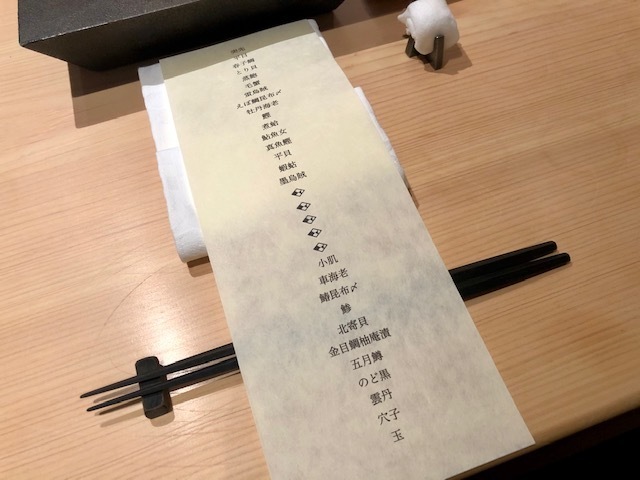 平目
春子鯛
とり貝
蒸鮑
毛蟹
雷烏賊
えぼ鯛昆布〆
牡丹海老
鰹
煮蛤
鮎魚女
真魚鰹
平貝
蝦蛄
墨烏賊
小肌
車海老
鰆昆布〆
鯵
北寄貝
金目鯛柚庵漬
五月鱒
のど黒
雲丹
穴子
玉